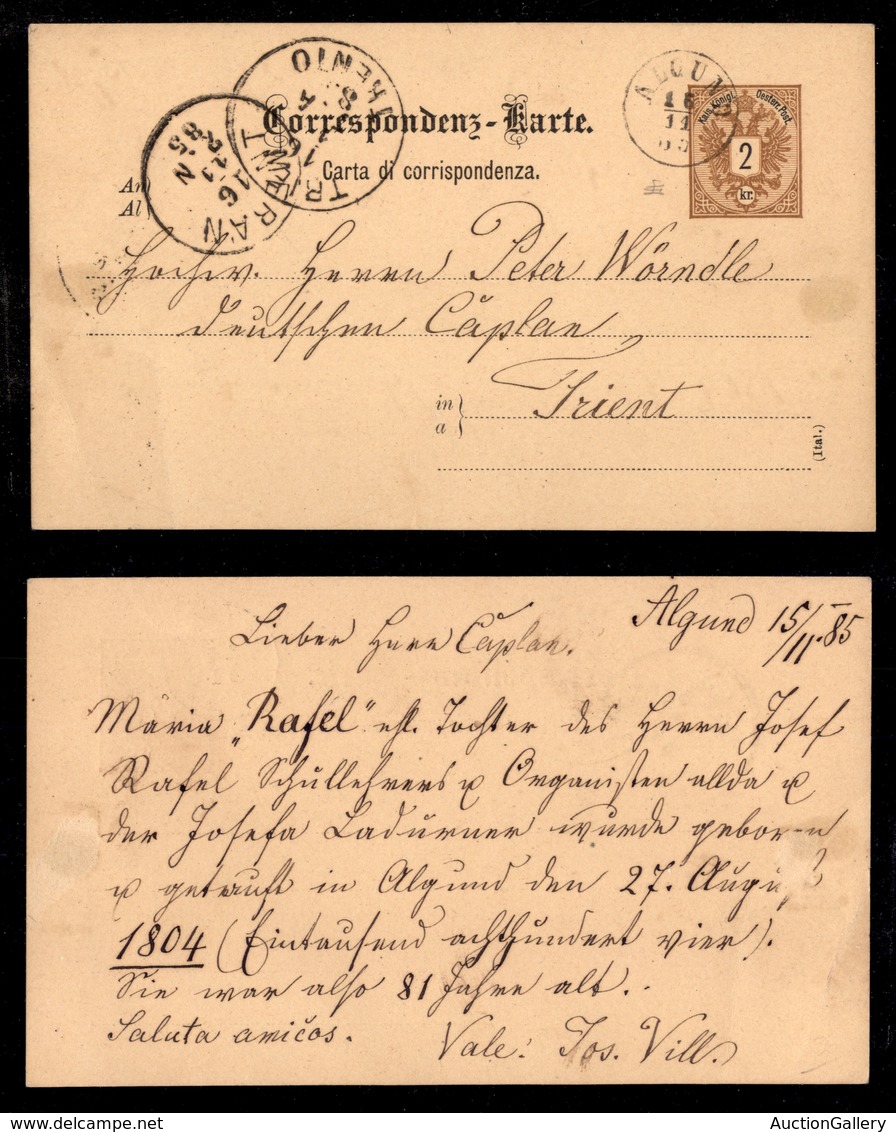 Correspondenz-Karte.
Carta di corrispondenza.
An
Al
Kais. Königl. Oesterr. Post.
2
kr.
ALGUND
16
11
TRIENT
TRENTO
MERAN
16
11
85
N
Hochw. Herrn Peter Wörndle
deutschen Caplan
in
a
Trient
(Ital.)
Algund 15/11. 85
Lieber Herr Caplan.
Maria „Rafel" ehl. Tochter des Herrn Josef
Rafel Schullehrers u Organisten allda u
der Josefa Ladurner wurde geboren
u getauft in Algund den 27. August
1804 (Eintausend achthundert vier).
Sie war also 81 Jahre alt.
Saluta amicos. Vale! Jos. Vill.
AuctionGallery